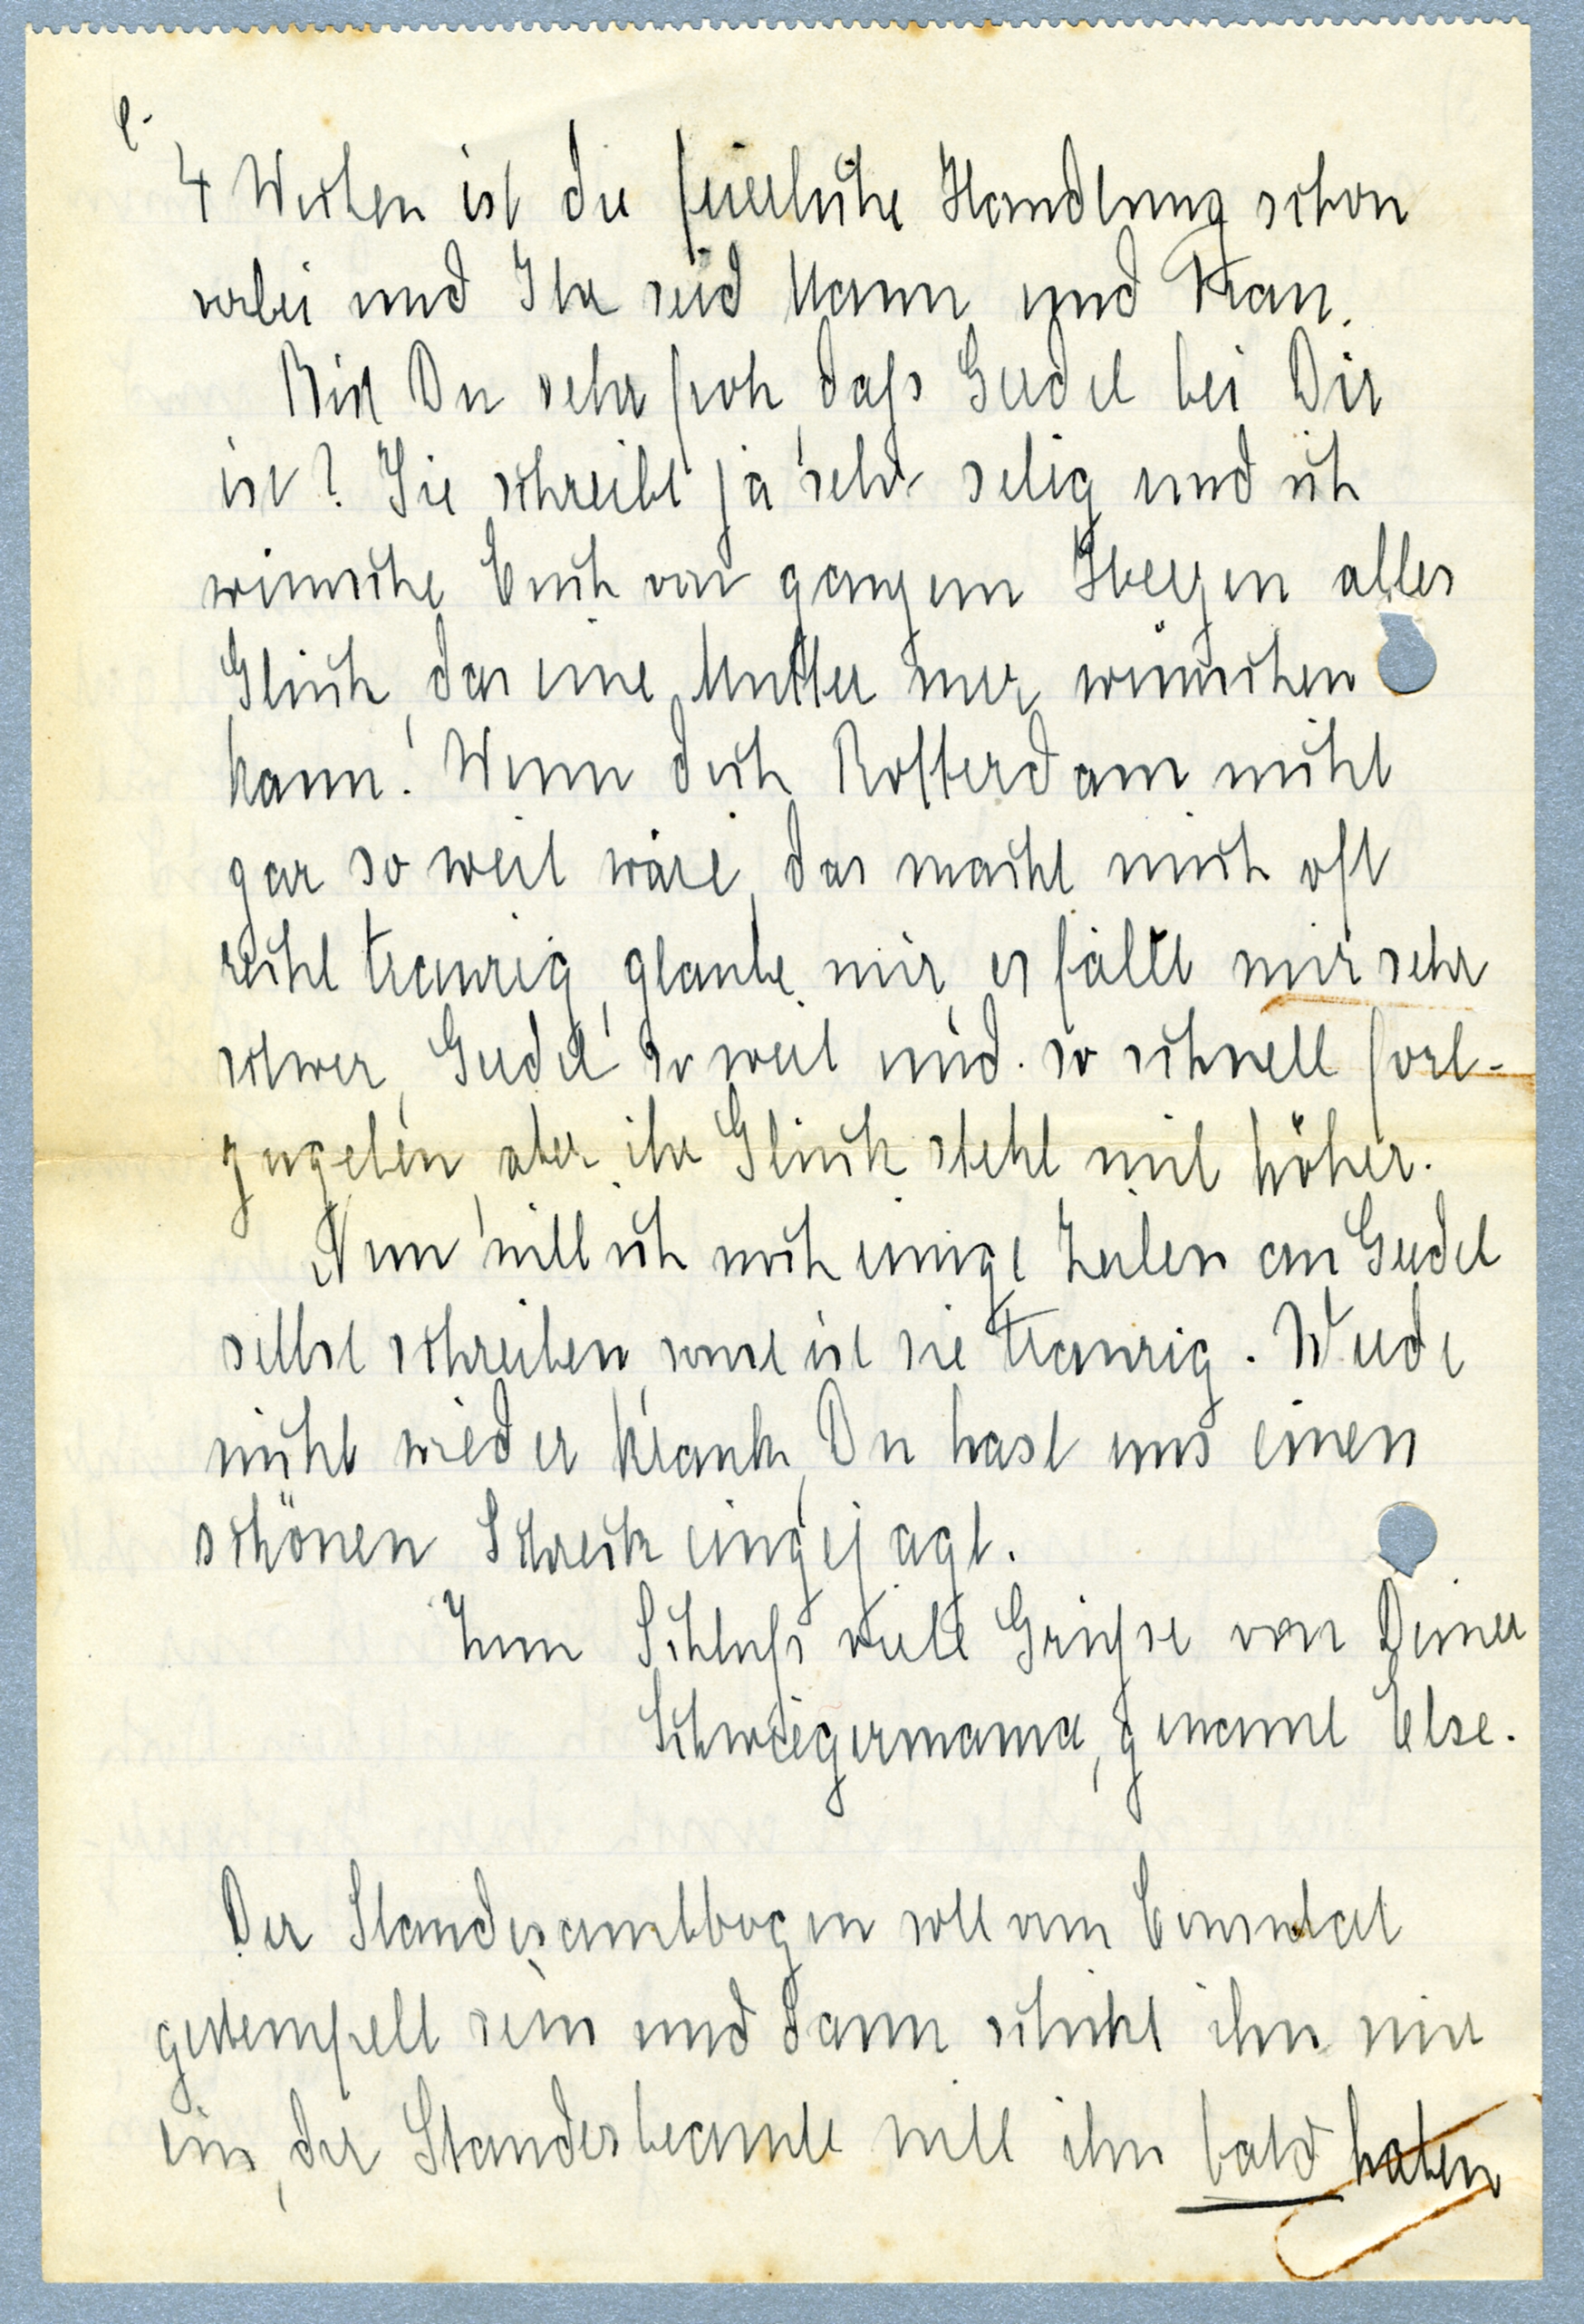 4 Wochen ist die feierliche Handlung schon
vorbei und Ihr seid Mann und Frau.
Bist Du sehr froh, daß Gerdel bei Dir
ist? Sie schreibt ja sehr selig und ich
wünsche Euch von ganzem Herzen alles
Glück, das eine Mutter nur wünschen
kann! Wenn doch Rotterdam nicht
gar so weit wäre, das macht mich oft
recht traurig, glaube mir, es fällt mir sehr
schwer, Gerdel so weit und so schnell fort-
zugeben, aber ihr Glück steht mir höher.
Nun will ich noch einige Zeilen an Gerdel
selbst schreiben, sonst ist sie traurig. Werde
nicht wieder krank, Du hast uns einen
schönen Schreck eingejagt.
Zum Schluß viele Grüße von Deiner
Schwiegermama, genannt Else.
Der Standesamtbogen soll vom Consulat
gestempelt sein und dann schickt ihn mir
ein, der Standesbeamte will ihn bald haben